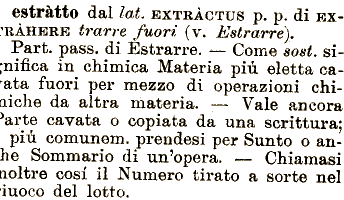 estràtto dal lat. EXTRÀCTUS p. p. di EX-
TRÀHERE trarre fuori (v. Estrarre).
Part. pass. di Estrarre. — Come sost. si-
gnifica in chimica Materia più eletta ca-
vata fuori per mezzo di operazioni chi-
miche da altra materia. — Vale ancora
Parte cavata o copiata da una scrittura;
più comunem. prendesi per Sunto o an-
che Sommario di un'opera. — Chiamasi
inoltre cosí il Numero tirato a sorte nel
giuoco del lotto.